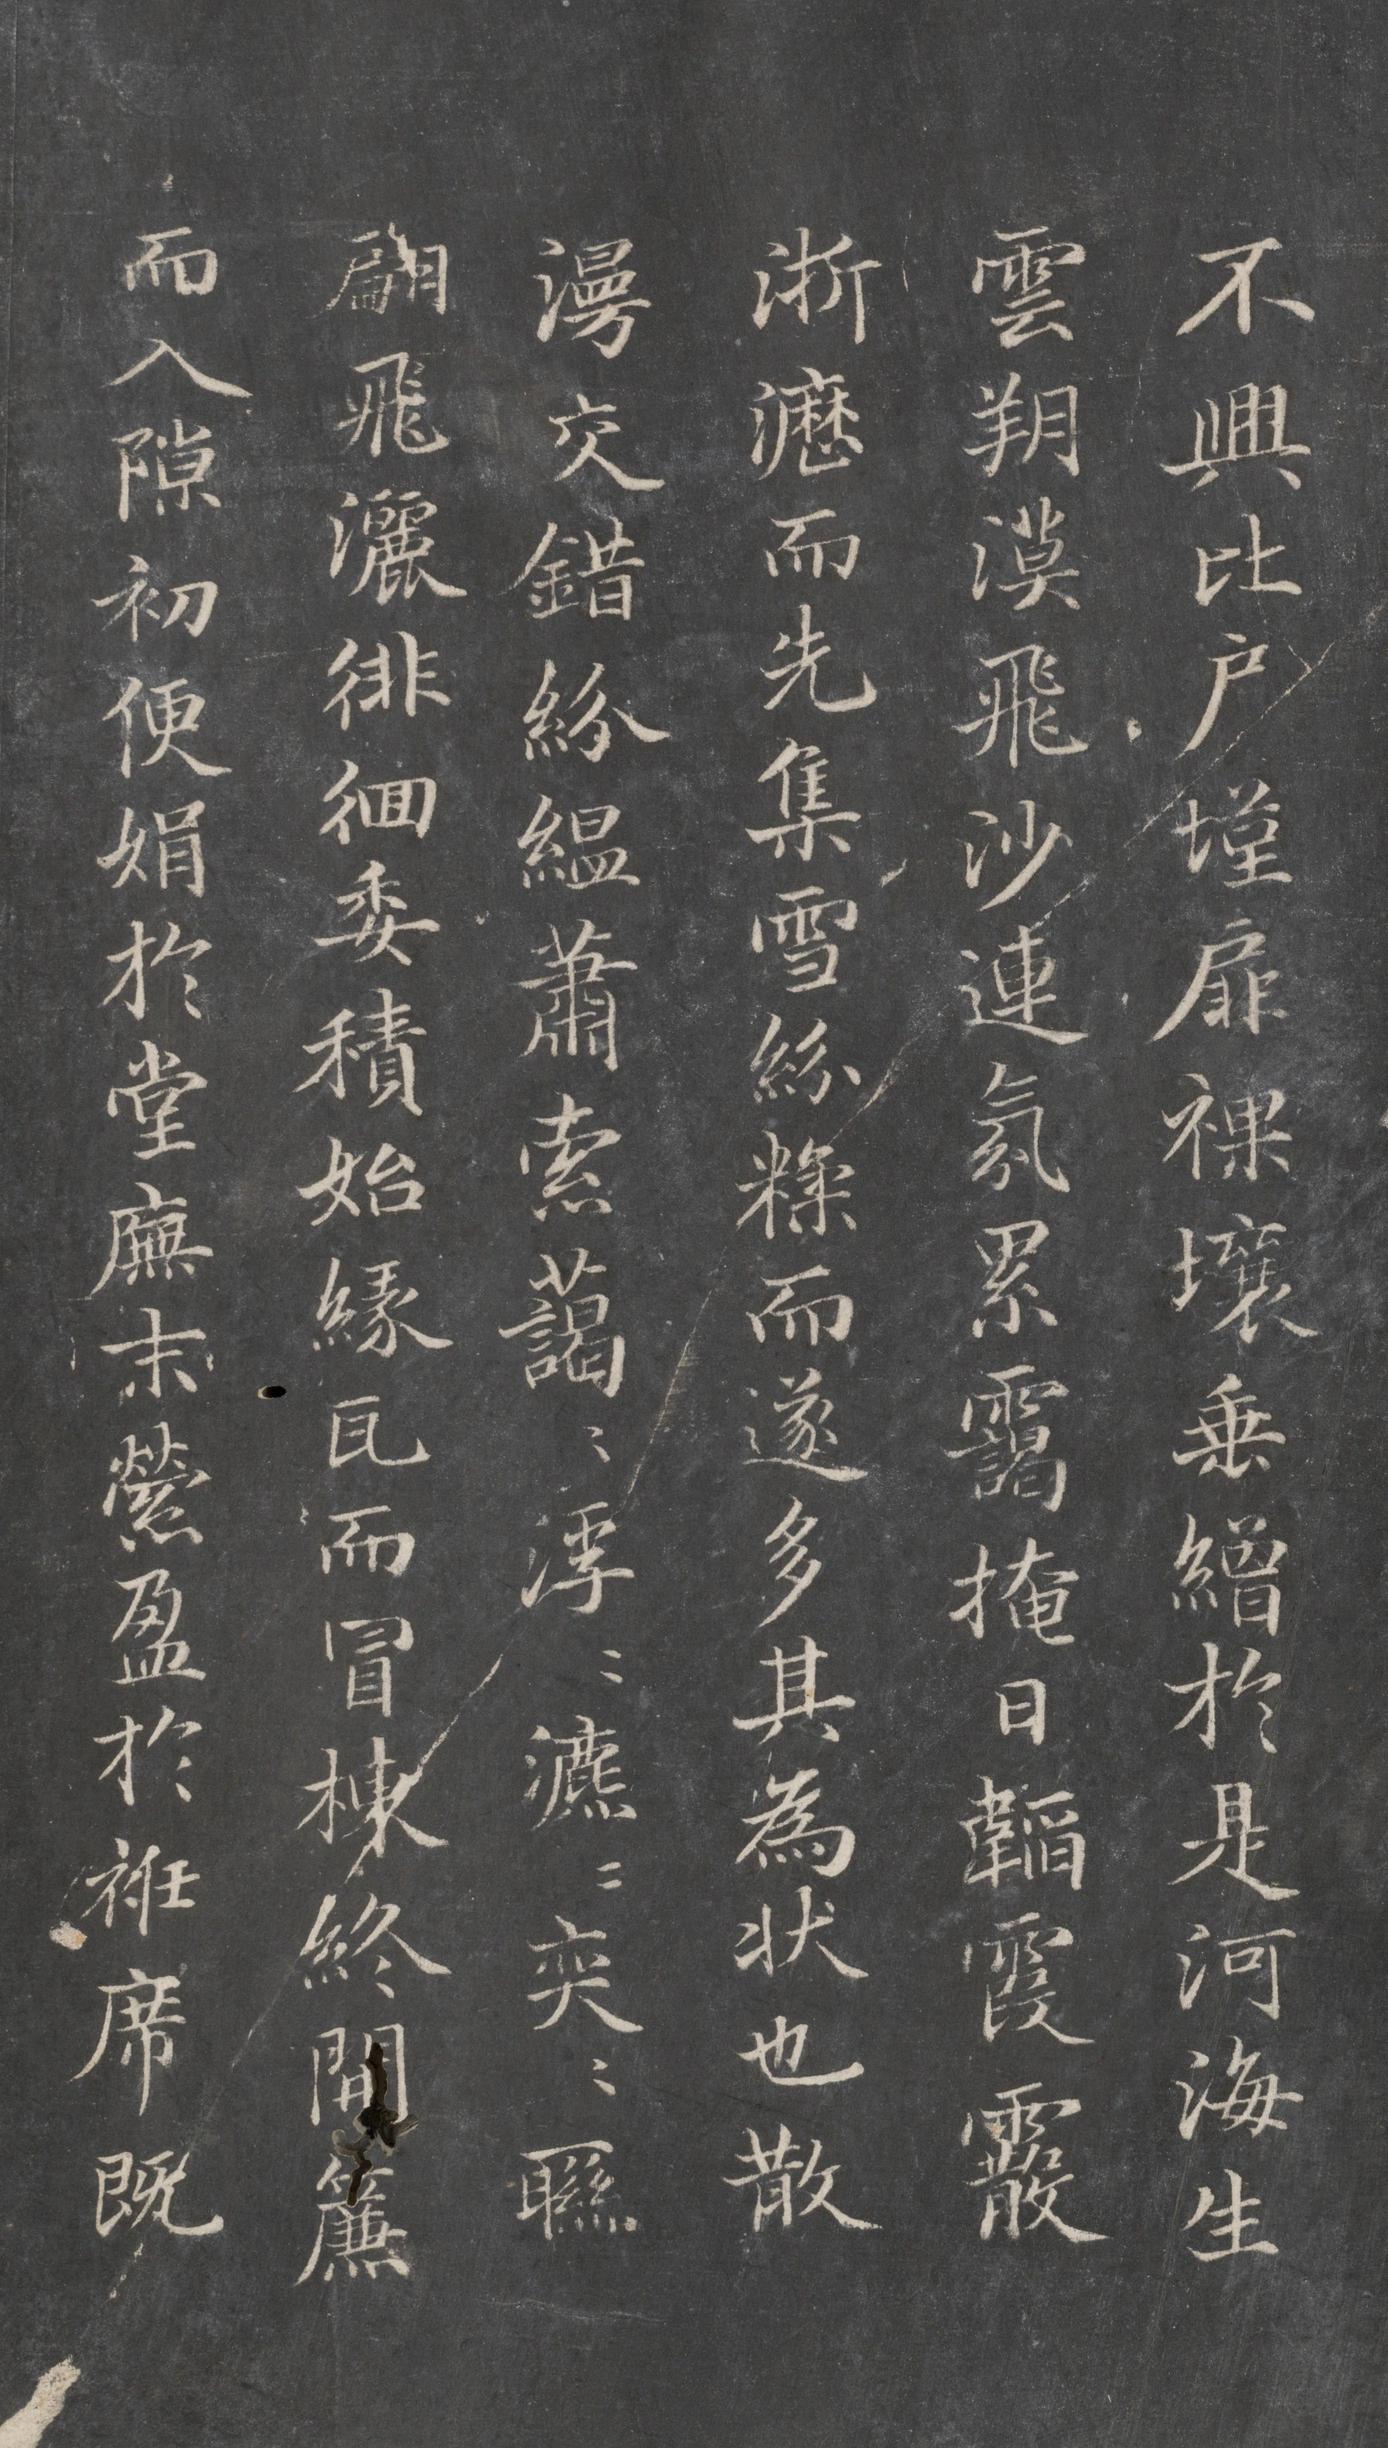 不興比戶墐扉裸壤垂繒於是河海生
雲朔漠飛沙連氛累靄掩日韜霞霰
淅瀝而先集雪紛糅而遂多其為狀也散
漫交錯紛縕蕭索藹〻浮〻瀌〻奕〻聯
翩飛灑徘徊委積始緣瓦而冒棟終開簾
而入隙初便娟於堂廡末縈盈於裖席既